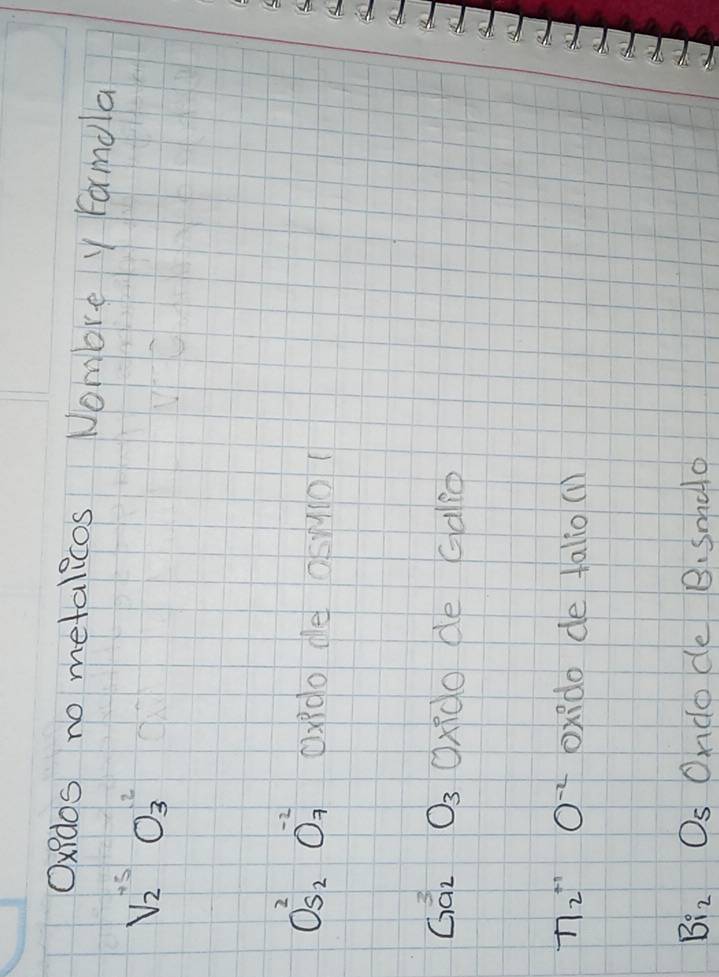 Oxidos no metalicos Nombre y Formula
V₂⁺⁵ O₃²
Os₂² O₇⁻² Oxido de OSMIO (
Ga₂³ O₃ Oxido de Galio
Tl₂⁺¹ O⁻² oxido de talio (1)
Bi₂ O₅ Oxido de Bismuto